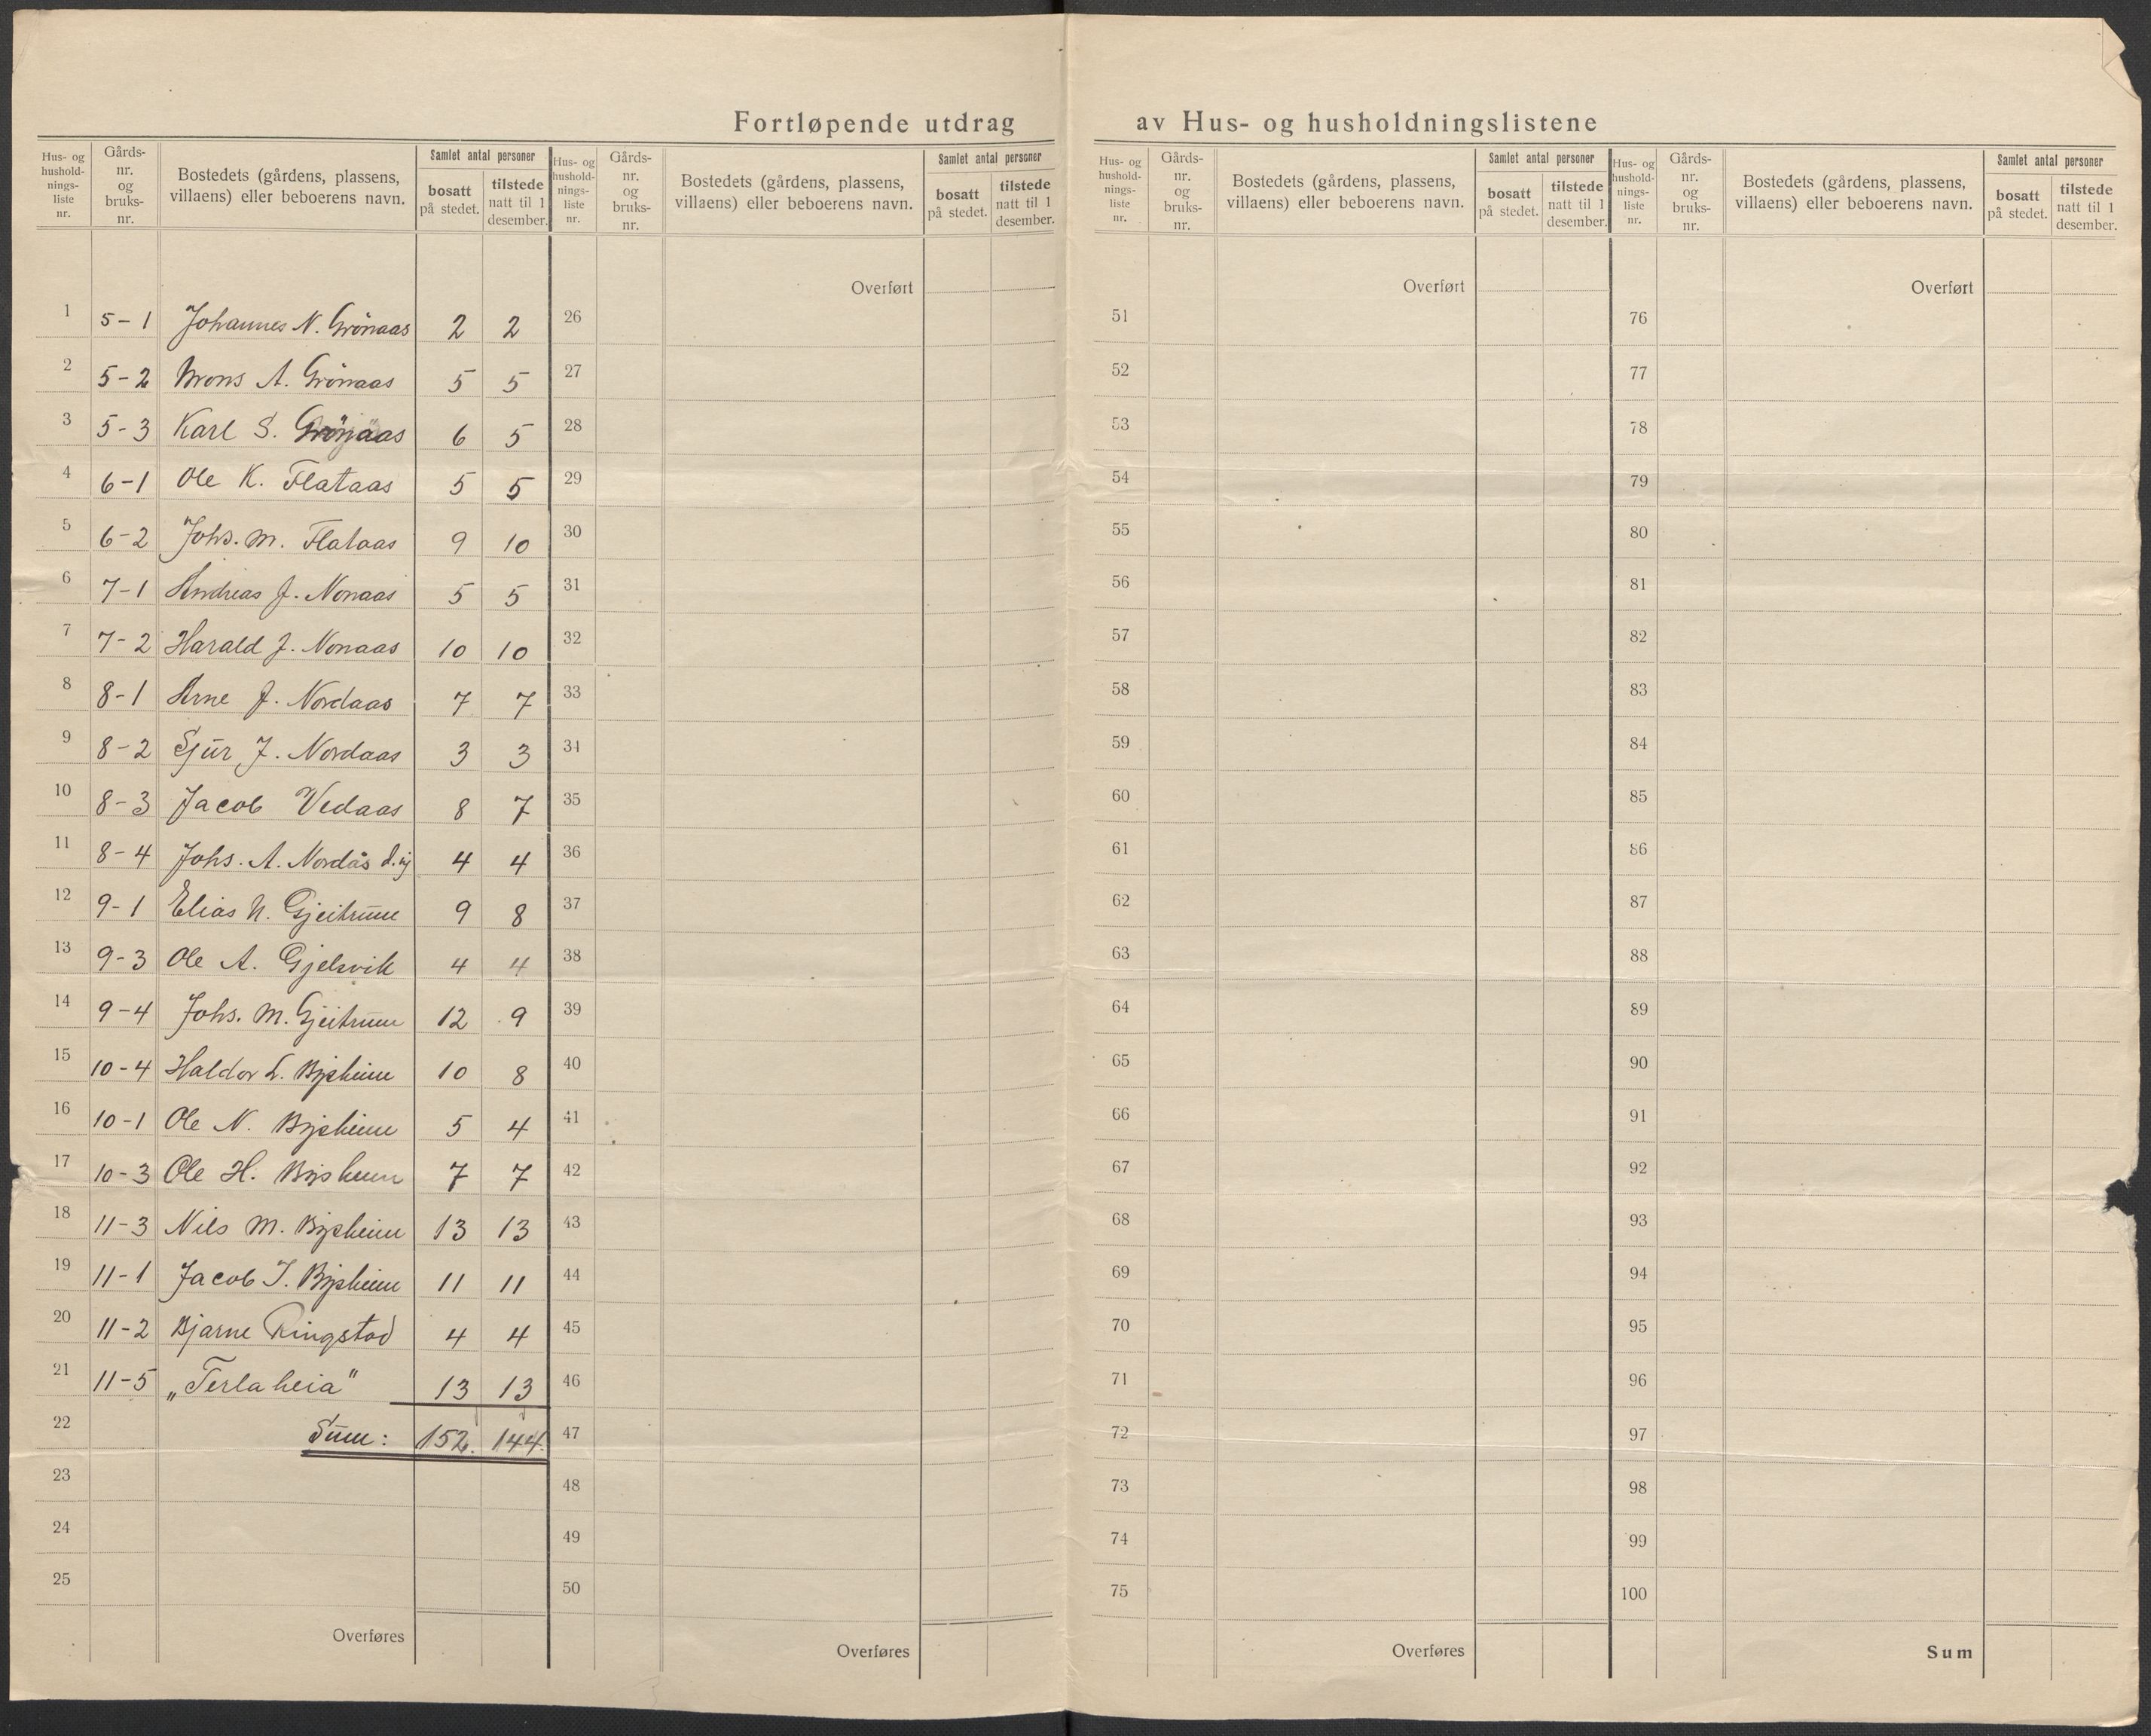 Fortløpende utdrag av Hus- og husholdningslistene
Hus- og hushold-nings-liste nr. Gårds-nr. og bruks-nr. Bostedets (gårdens, plassens, villaens) eller beboerens navn. Samlet antal personer bosatt på stedet. tilstede natt til 1 desember.
Hus- og hushold-nings-liste nr. Gårds-nr. og bruks-nr. Bostedets (gårdens, plassens, villaens) eller beboerens navn. Samlet antal personer bosatt på stedet. tilstede natt til 1 desember.
Hus- og hushold-nings-liste nr. Gårds-nr. og bruks-nr. Bostedets (gårdens, plassens, villaens) eller beboerens navn. Samlet antal personer bosatt på stedet. tilstede natt til 1 desember.
Hus- og hushold-nings-liste nr. Gårds-nr. og bruks-nr. Bostedets (gårdens, plassens, villaens) eller beboerens navn. Samlet antal personer bosatt på stedet. tilstede natt til 1 desember.
1 5-1 Johannes N. Grönaas 2 2
2 5-2 Mons A. Grönaas 5 5
3 5-3 Karl S. Grönaas 6 5
4 6-1 Ole K. Flataas 5 5
5 6-2 Johs. M. Flataas 9 10
6 7-1 Andreas J. Nonaas 5 5
7 7-2 Harald J. Nonaas 10 10
8 8-1 Arne J. Nordaas 7 7
9 8-2 Sjur J. Nordaas 3 3
10 8-3 Jacob Vedaas 8 7
11 8-4 Johs. A. Nordås d.y 4 4
12 9-1 Elias N. Gjeitrum 9 8
13 9-3 Ole A. Gjelsvik 4 4
14 9-4 Johs. M. Gjeitrum 12 9
15 10-4 Haldor L. Bysheim 10 8
16 10-1 Ole N. Bysheim 5 4
17 10-3 Ole H. Bysheim 7 7
18 11-3 Nils M. Bysheim 13 13
19 11-1 Jacob J. Bysheim 11 11
20 11-2 Bjarne Ringstad 4 4
21 11-5 „Terlaheia" 13 13
22 Sum: 152. 144.
23
24
25
Overføres
Overført
26
27
28
29
30
31
32
33
34
35
36
37
38
39
40
41
42
43
44
45
46
47
48
49
50
Overføres
Overført
51
52
53
54
55
56
57
58
59
60
61
62
63
64
65
66
67
68
69
70
71
72
73
74
75
Overføres
Overført
76
77
78
79
80
81
82
83
84
85
86
87
88
89
90
91
92
93
94
95
96
97
98
99
100
Sum